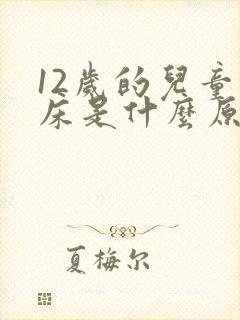 12歲的兒童
床是什麼原
夏梅尔